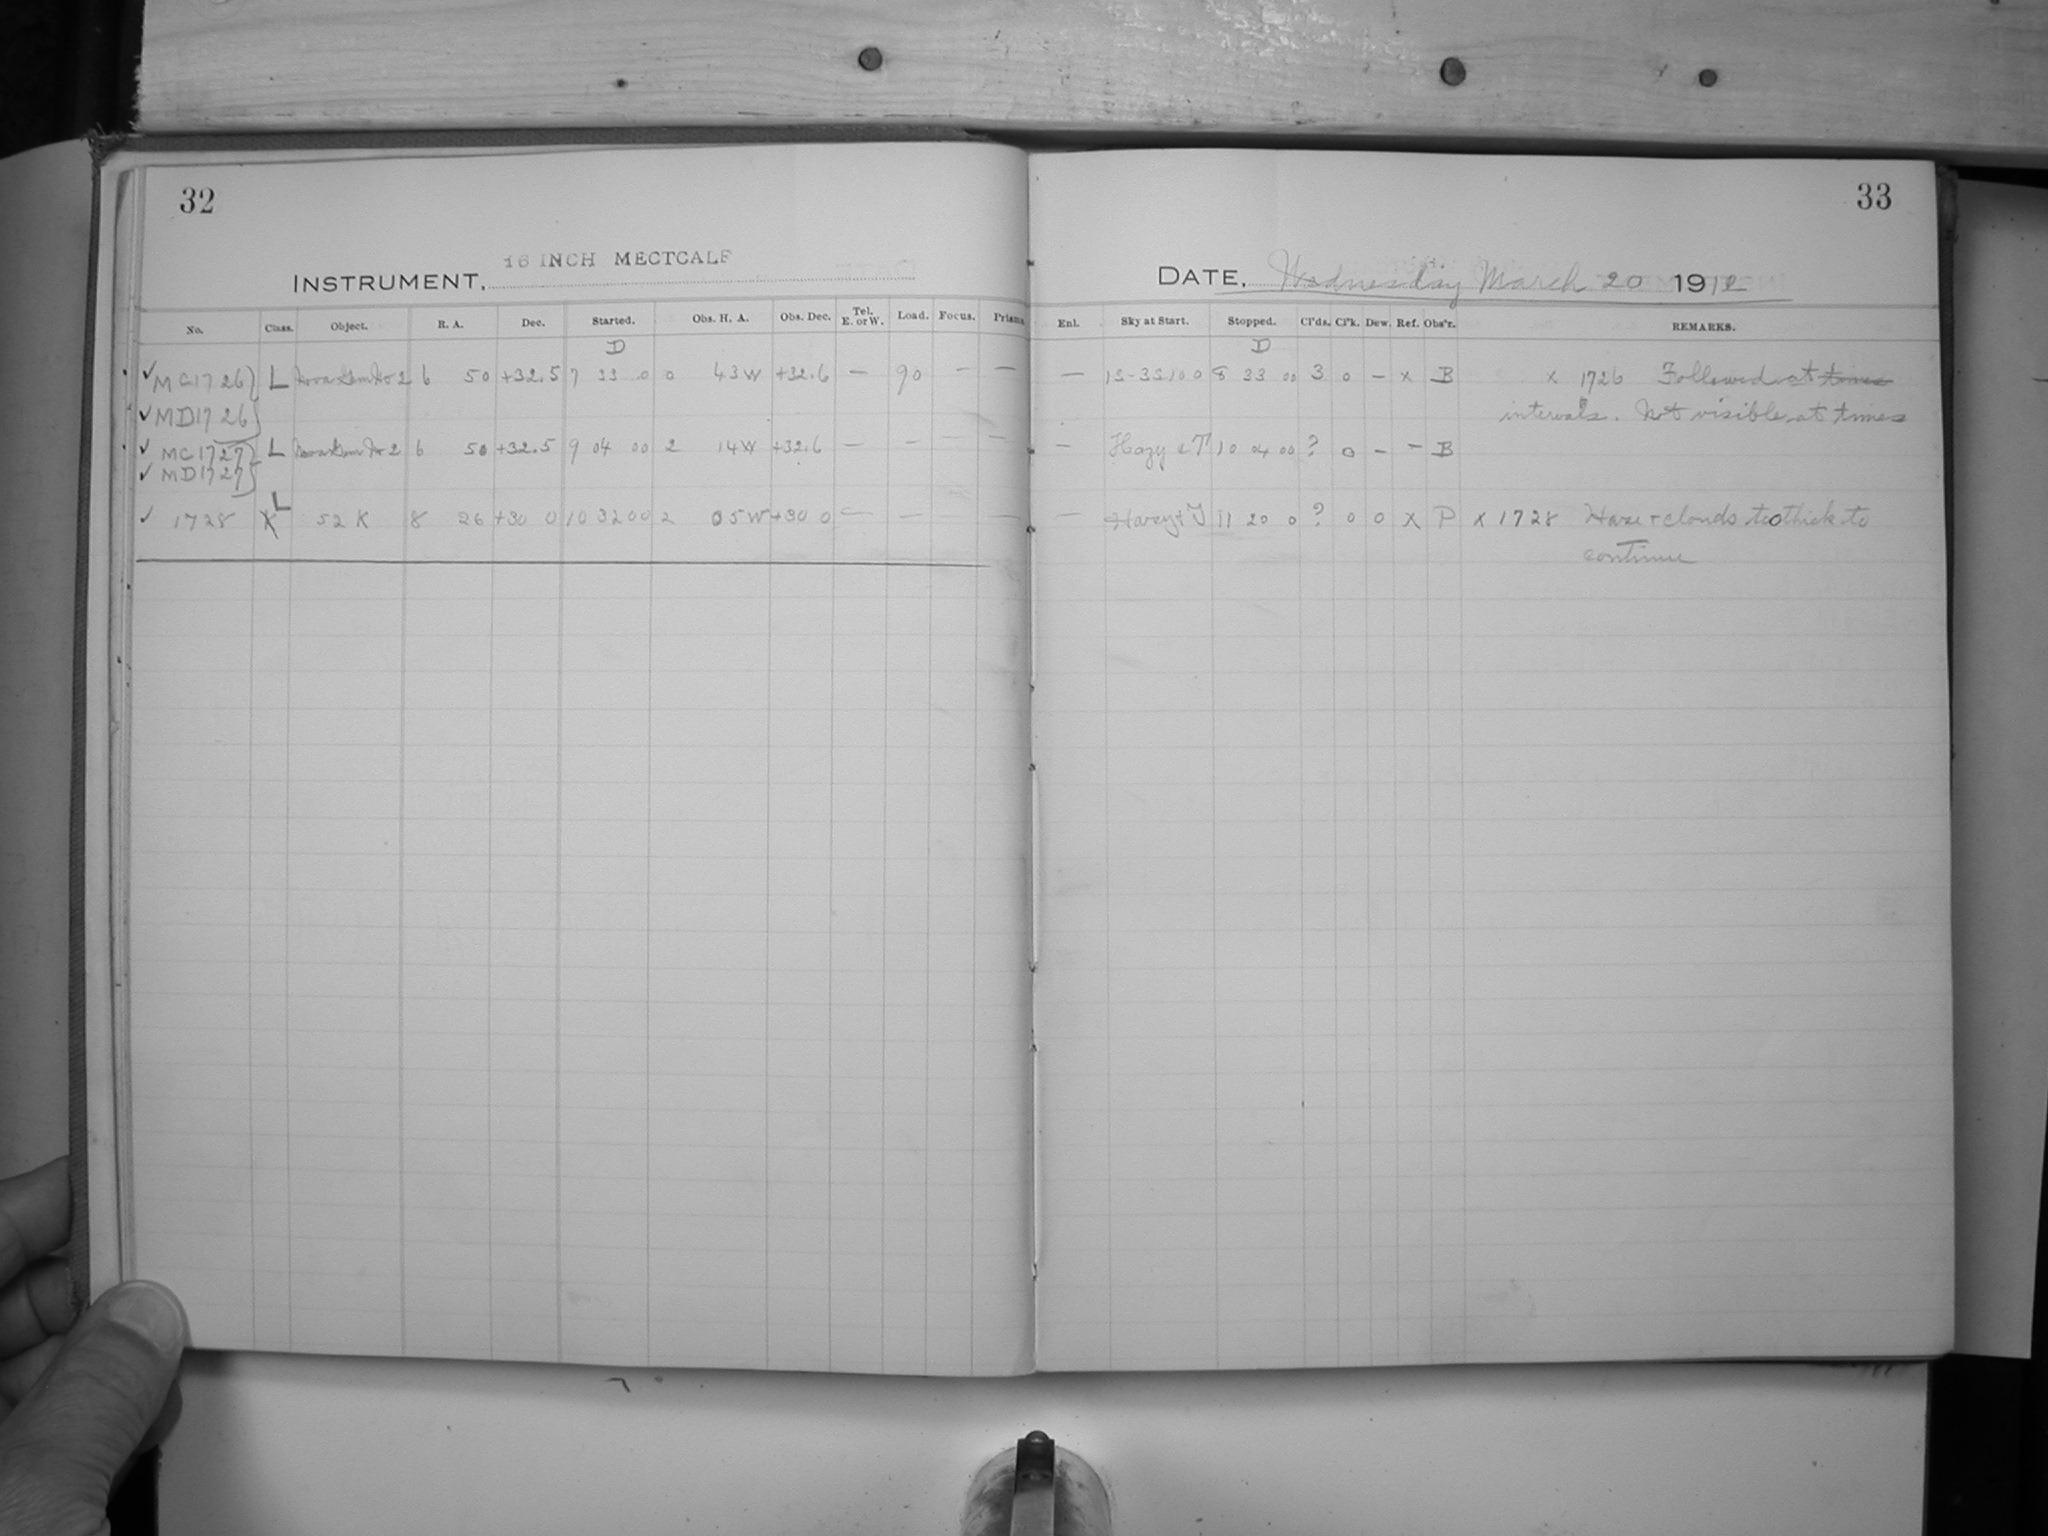 32
16 INCH MECTCALF
INSTRUMENT.
No. Class. Object. R. A. Dec. Started. Obs. H. A. Obs. Dec. Tel. E. or W. Load. Focus. Prisms
D
✓ MC1726} L Nova Gem No 2 6 50 +32.5 7 33 0 0 43 W +32.6 — 90 — —
✓ MD1726}
✓ MC1727} L Nova Gem No 2 6 50 +32.5 9 04 00 2 14 W +32.6 — — — —
✓ MD1727}
L
✓ 1728 X 52 K 8 26 +30 0 10 32 00 2 05 W +30 0 — — — —
33
DATE. Wednesday March 20 1912
Enl. Sky at Start. Stopped. Cl'ds. Cl'k. Dew. Ref. Obs'r. REMARKS.
D
— 1S-3S100 8 33 00 3 0 — x B x 1726 Followed at times
intervals. Not visible at times
— Hazy + T 10 04 00 ? 0 — — B
— Hazy + T 11 20 0 ? 0 0 X P x 1728 Haze + clouds too thick to
continue